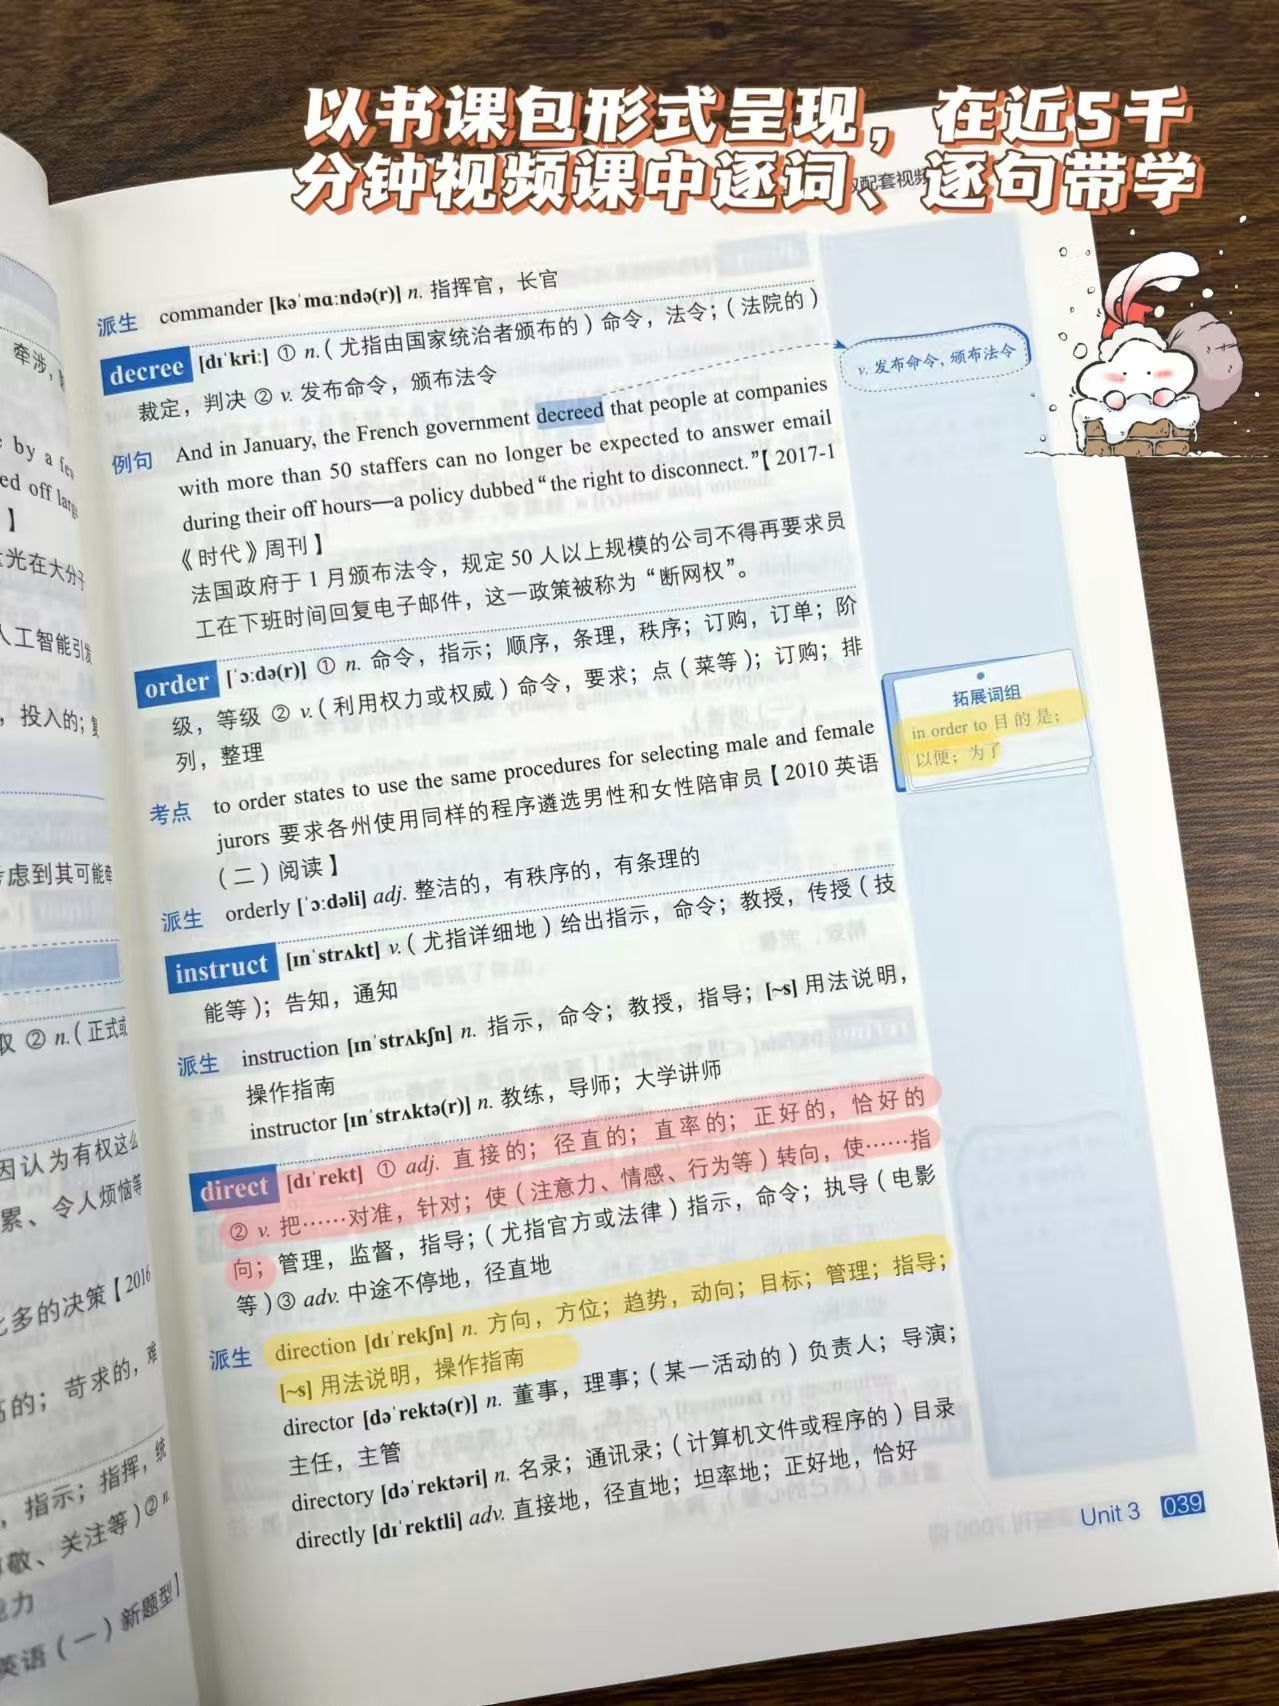 以书课包形式呈现，在近5千
分钟视频课中逐词、逐句带学
配套视频
派生 commander [kəˈmɑːndə(r)] n. 指挥官，长官
decree [dɪˈkriː] ① n.（尤指由国家统治者颁布的）命令，法令；（法院的）
裁定，判决 ② v. 发布命令，颁布法令
v. 发布命令，颁布法令
例句 And in January, the French government decreed that people at companies
with more than 50 staffers can no longer be expected to answer email
during their off hours—a policy dubbed “the right to disconnect.”【2017-1
《时代》周刊】
法国政府于 1 月颁布法令，规定 50 人以上规模的公司不得再要求员
工在下班时间回复电子邮件，这一政策被称为“断网权”。
order [ˈɔːdə(r)] ① n. 命令，指示；顺序，条理，秩序；订购，订单；阶
级，等级 ② v.（利用权力或权威）命令，要求；点（菜等）；订购；排
列，整理
拓展词组
in order to 目的是；
以便；为了
考点 to order states to use the same procedures for selecting male and female
jurors 要求各州使用同样的程序遴选男性和女性陪审员【2010 英语
（二）阅读】
派生 orderly [ˈɔːdəli] adj. 整洁的，有秩序的，有条理的
instruct [ɪnˈstrʌkt] v.（尤指详细地）给出指示，命令；教授，传授（技
能等）；告知，通知
派生 instruction [ɪnˈstrʌkʃn] n. 指示，命令；教授，指导；[~s] 用法说明，
操作指南
instructor [ɪnˈstrʌktə(r)] n. 教练，导师；大学讲师
direct [dɪˈrekt] ① adj. 直接的；径直的；直率的；正好的，恰好的
② v. 把……对准，针对；使（注意力、情感、行为等）转向，使……指
向；管理，监督，指导；（尤指官方或法律）指示，命令；执导（电影
等）③ adv. 中途不停地，径直地
派生 direction [dɪˈrekʃn] n. 方向，方位；趋势，动向；目标；管理；指导；
[~s] 用法说明，操作指南
director [dəˈrektə(r)] n. 董事，理事；（某一活动的）负责人；导演；
主任，主管
directory [dəˈrektəri] n. 名录；通讯录；（计算机文件或程序的）目录
directly [dɪˈrektli] adv. 直接地，径直地；坦率地；正好地，恰好
Unit 3 039
牵涉，
e by a few
ed off larg
】
光在大分子
人工智能引发
，投入的；复
考虑到其可能牵
取 ② n.（正式或
因认为有权这么
累、令人烦恼等
多的决策【2016
的；苛求的，难
，指示；指挥，统
敬、关注等）② n.
力
英语（一）新题型】